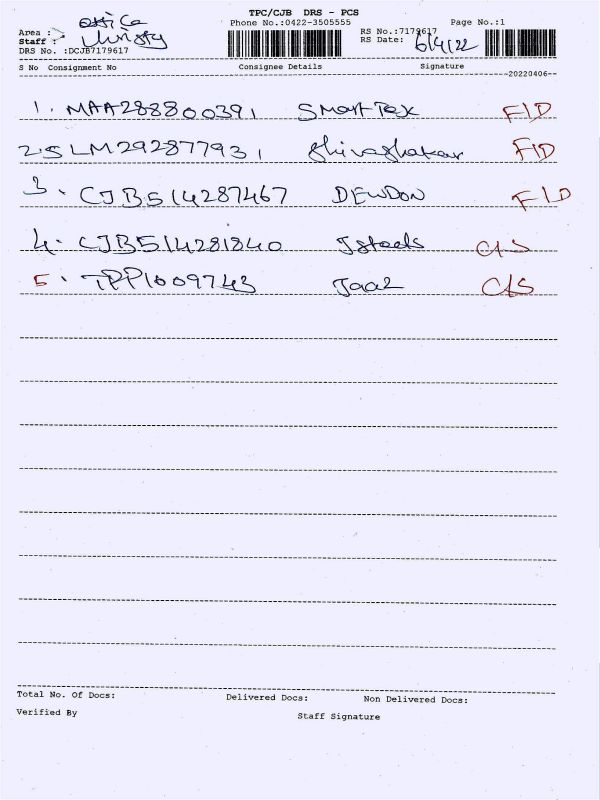 TPC/CJB DRS - PCS
Area : office Phone No.:0422-3505555 Page No.:1
Staff : RS No.:7179617
DRS No. :DCJB7179617 RS Date: 6/4/22
S No Consignment No Consignee Details Signature
20220406
1. MAA288800391 Smart Tex F/D
2. SLM292877931 Shivashakar F/D
3. CJB514287467 DEWDON F/D
4. CJB514281840 Jsteels C/S
5. TPP1009743 Jaaz C/S
Total No. Of Docs: Delivered Docs: Non Delivered Docs:
Verified By Staff Signature